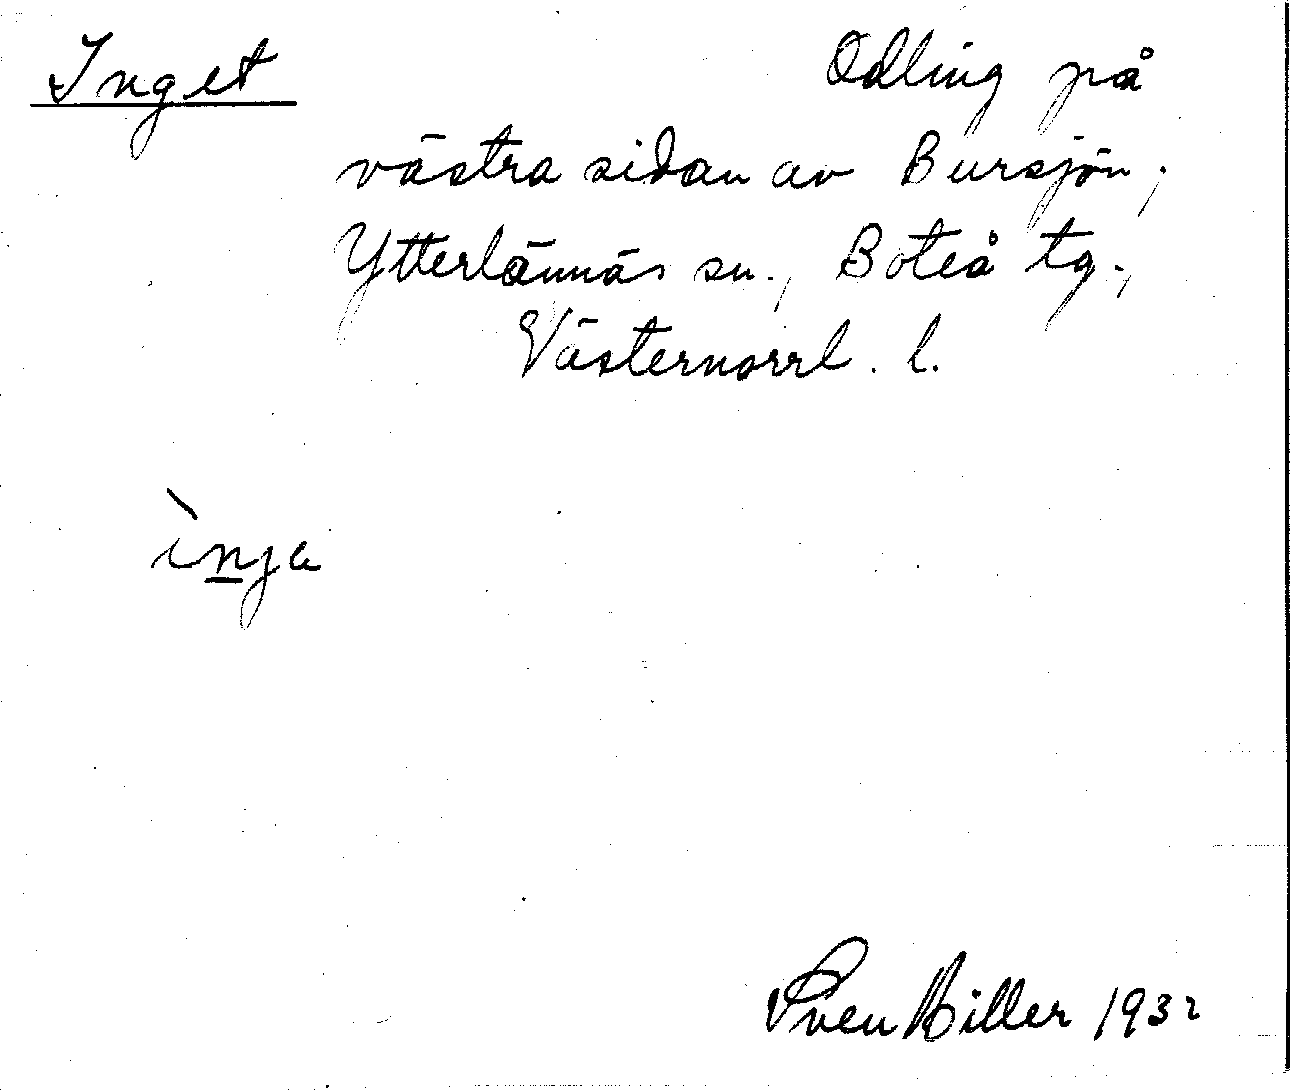 Inget
Odling på
västra sidan av Bursjön,
Ytterlännäs sn., Boteå tg.,
Västernorrl. l.
ìnja
Sven Hiller 1932